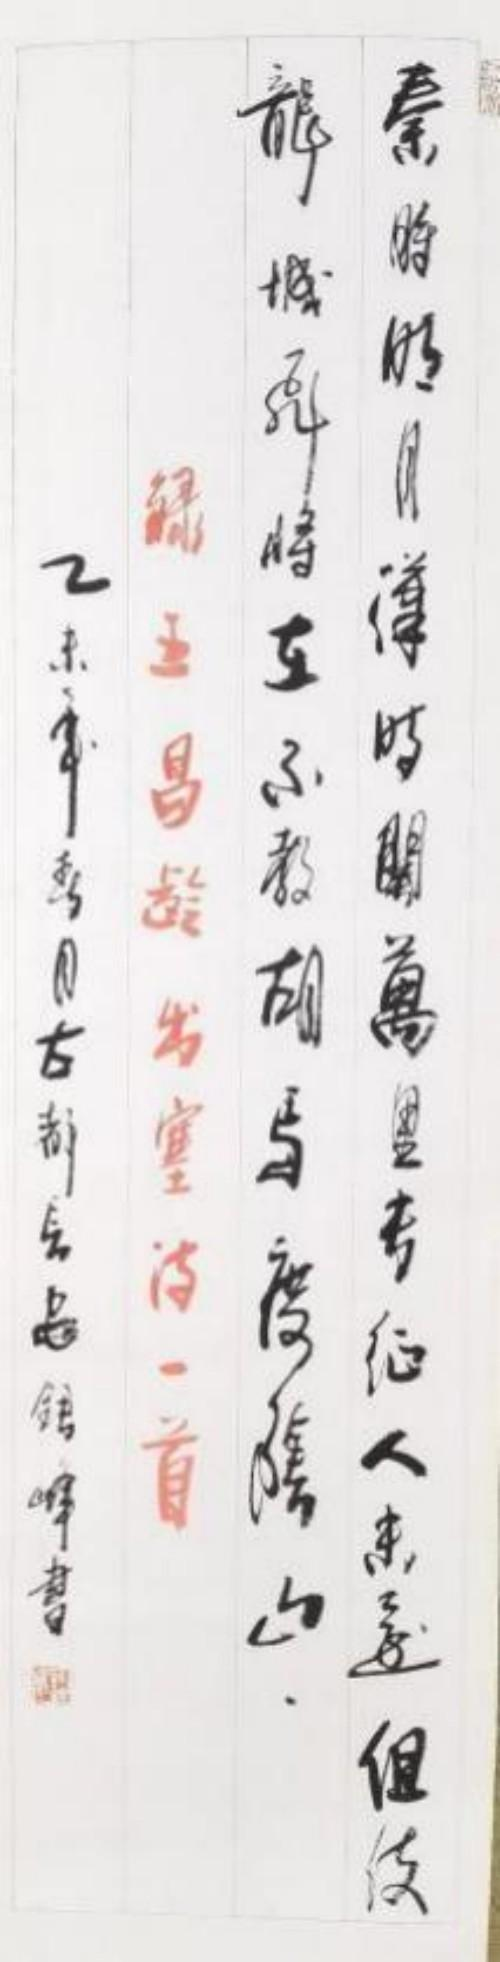 秦時明月漢時關萬里長征人未還但使
龍城飛將在不教胡馬度陰山
録王昌齡出塞詩一首
乙未年春月古都長安銀峰書